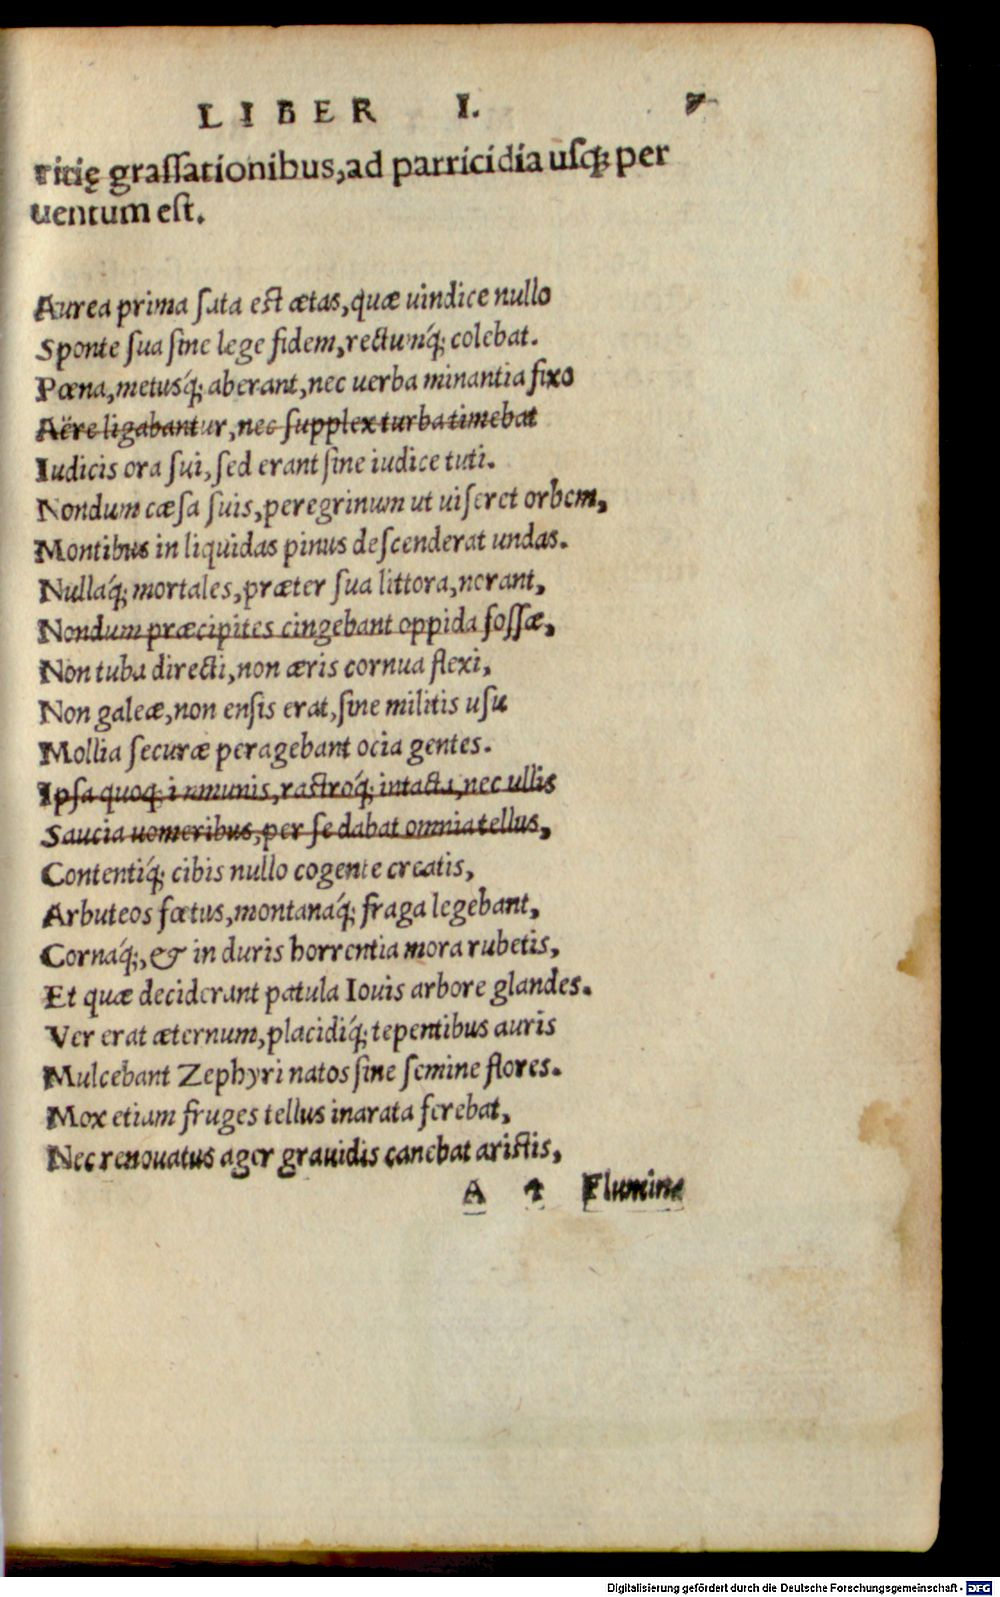 LIBER I. 7
ritię grassationibus, ad parricidia usq; per
uentum est.
Aurea prima sata est ætas, quæ uindice nullo
Sponte sua sine lege fidem, rectunq́; colebat.
Pœna, metusq́; aberant, nec uerba minantia fixo
Aëre ligabantur, nec supplex turba timebat
Iudicis ora sui, sed erant sine iudice tuti.
Nondum cæsa suis, peregrinum ut uiseret orbem,
Montibus in liquidas pinus descenderat undas.
Nullaq́; mortales, præter sua littora, norant,
Nondum præcipites cingebant oppida fossæ,
Non tuba directi, non æris cornua flexi,
Non galeæ, non ensis erat, sine militis usu
Mollia securæ peragebant ocia gentes.
Ipsa quoq; immunis, rastroq́; intacta, nec ullis
Saucia uomeribus, per se dabat omnia tellus,
Contentiq́; cibis nullo cogente creatis,
Arbuteos fœtus, montanaq́; fraga legebant,
Cornaq́;, & in duris horrentia mora rubetis,
Et quæ deciderant patula Iouis arbore glandes.
Ver erat æternum, placidiq́; tepentibus auris
Mulcebant Zephyri natos sine semine flores.
Mox etiam fruges tellus inarata ferebat,
Nec renouatus ager grauidis canebat aristis,
A 4 Flumina
Digitalisierung gefördert durch die Deutsche Forschungsgemeinschaft - DFG